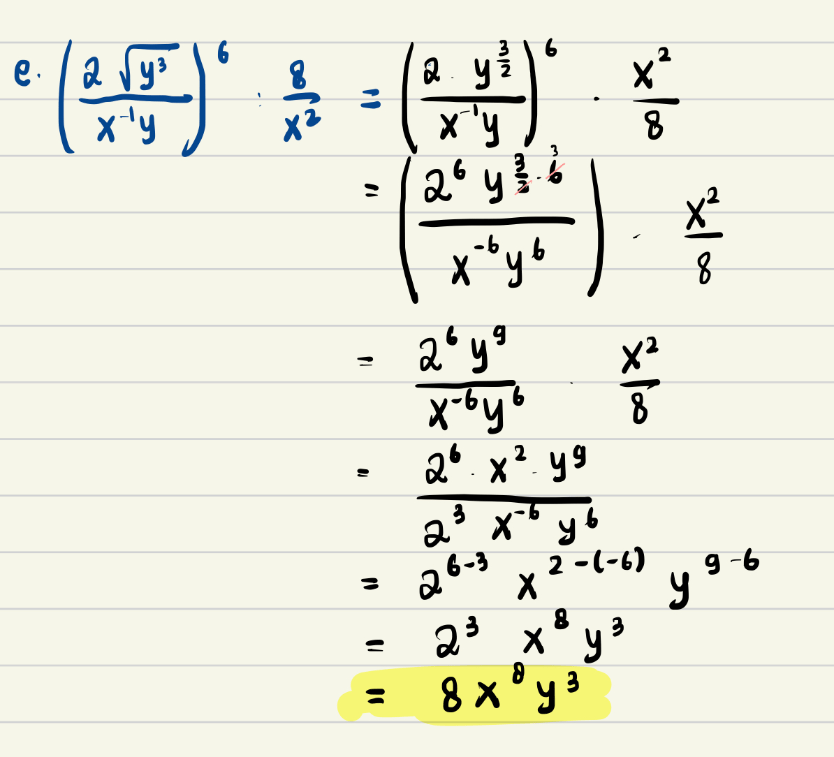 e. (2 √y³ / x⁻¹y)⁶ : 8/x² = (2 · y^(3/2) / x⁻¹y)⁶ · x²/8
= (2⁶ y^(3/2 · 6) ³ / x⁻⁶ y⁶) · x²/8
= 2⁶ y⁹ / x⁻⁶ y⁶ · x²/8
= 2⁶ · x² · y⁹ / 2³ x⁻⁶ y⁶
= 2⁶⁻³ x^(2-(-6)) y⁹⁻⁶
= 2³ x⁸ y³
= 8 x⁸ y³